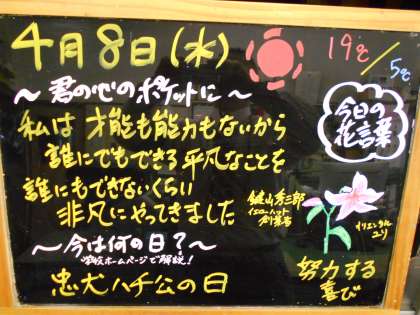 4月8日(水)
19℃/5℃
～君の心のポケットに～
私は才能も能力もないから
誰にでもできる平凡なことを
誰にもできないくらい
非凡にやってきました
鍵山秀三郎
イエローハット
創業者
今日の
花言葉
オリエンタル
ユリ
努力する
喜び
～今は何の日？～
学校ホームページで解説！
忠犬ハチ公の日